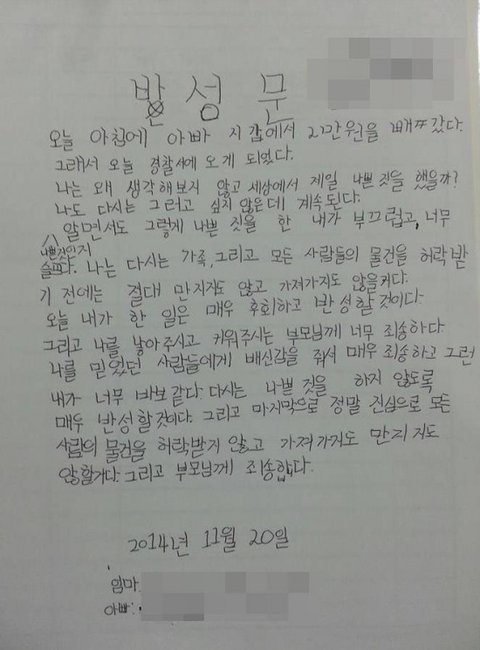 반성문
오늘 아침에 아빠 지갑에서 21만원을 빼ㅉ갔다.
그래서 오늘 경찰서에 오게 되었다.
나는 왜 생각해보지 않고 세상에서 제일 나쁜 짓을 했을까?
나도 다시는 그러고 싶지 않은데 계속된다.
알면서도 그렇게 나쁜 짓을 한 내가 부끄럽고, 너무
나쁜짓인지
슬프다. 나는 다시는 가족, 그리고 모든 사람들의 물건을 허락받
기 전에는 절대 만지지도 않고 가져가지도 않을거다.
오늘 내가 한 일은 매우 후회하고 반성할 것이다.
그리고 나를 낳아주시고 키워주시는 부모님께 너무 죄송하다
나를 믿었던 사람들에게 배신감을 줘서 매우 죄송하고 그런
내가 너무 바보같다. 다시는 나쁜 짓을 하지 않도록
매우 반성할것이다. 그리고 마지막으로 정말 진심으로 모든
사람의 물건을 허락받지 않고 가져가지도 만지지도
않할거다. 그리고 부모님께 죄송합다.
2014년 11월 20일
엄마:
아빠: